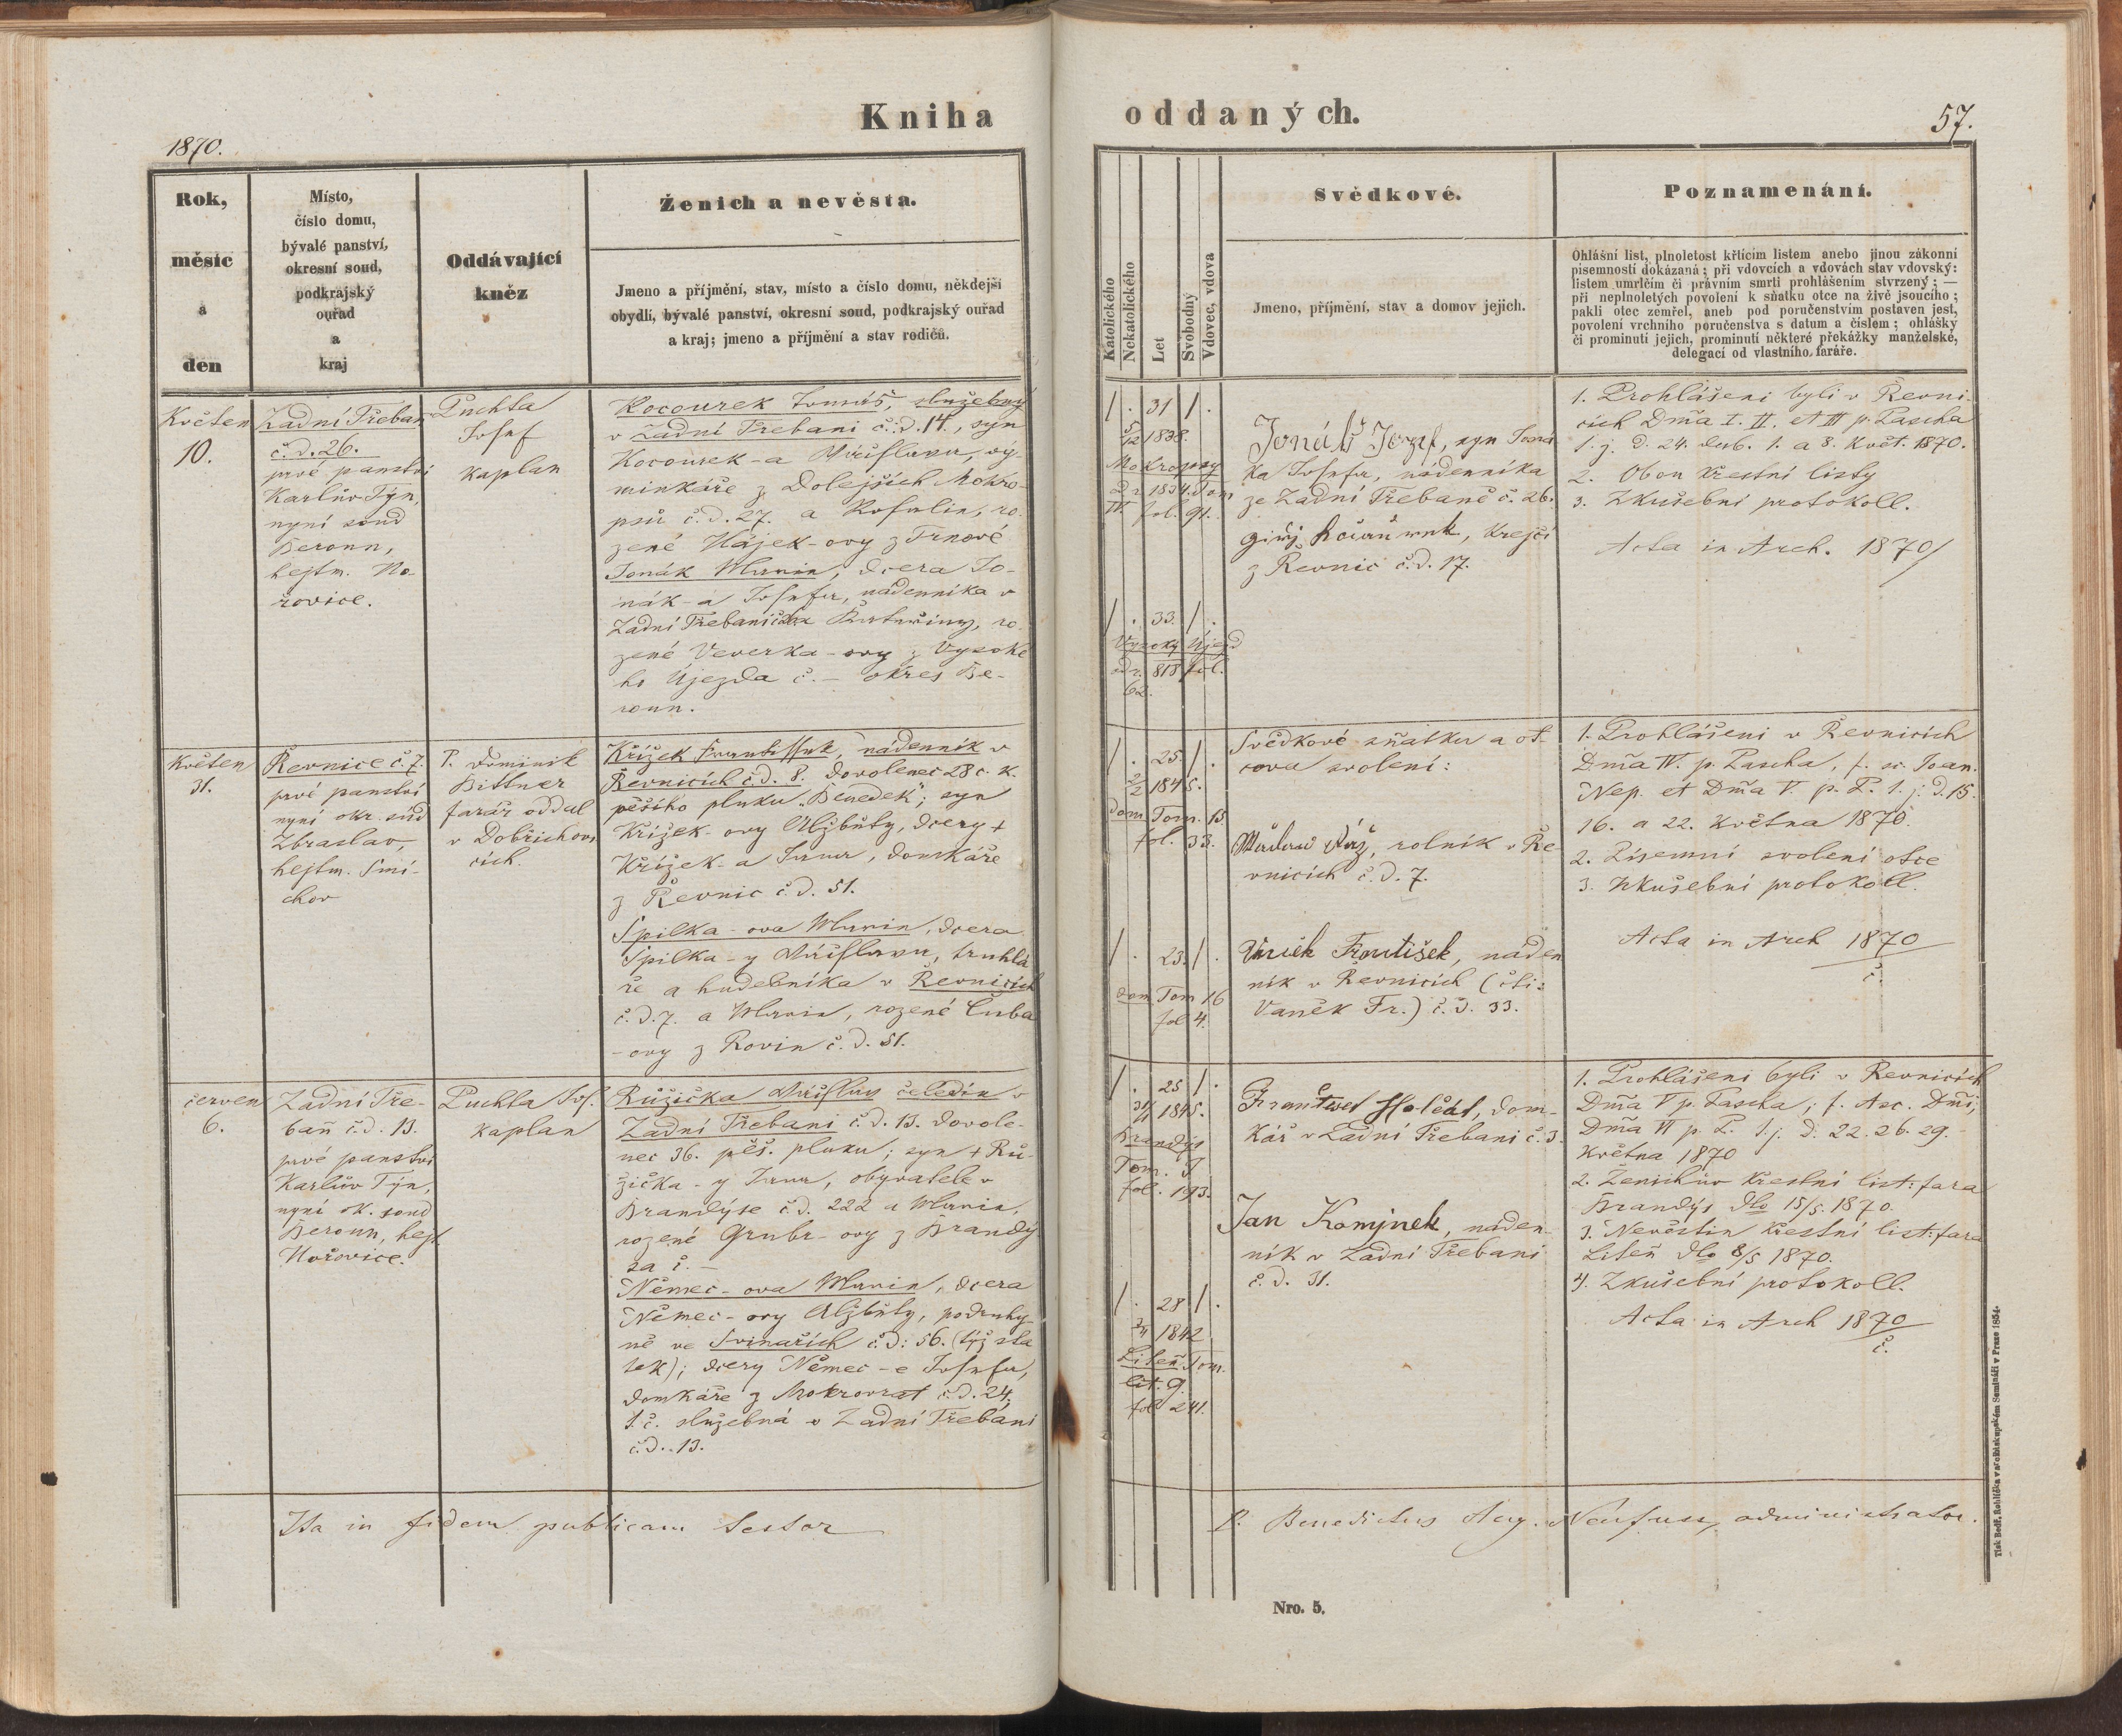 Kniha
oddaných.
1870.
57.
Rok,
měsíc
a
den
Místo,
číslo domu,
bývalé panství,
okresní soud,
podkrajský
ouřad
a
kraj
Oddávající
kněz
Ženich a nevěsta.
Jmeno a příjmění, stav, místo a číslo domu, někdejší
obydlí, bývalé panství, okresní soud, podkrajský ouřad
a kraj; jmeno a příjmění a stav rodičů.
Katolického
Nekatolického
Let
Svobodný
Vdovec, vdova
Svědkové.
Jmeno, příjmění, stav a domov jejich.
Poznamenání.
Ohlášní list, plnoletost křtícím listem anebo jinou zákonní
písemností dokázaná; při vdovcích a vdovách stav vdovský:
listem umrlčím či právním smrti prohlášením stvrzený; —
při neplnoletých povolení k sňatku otce na živě jsoucího;
pakli otec zemřel, aneb pod poručenstvím postaven jest,
povolení vrchního poručenstva s datum a číslem; ohlášky
či prominutí jejich, prominutí některé překážky manželské,
delegací od vlastního faráře.
Květen
10.
Zadní Třebaň
č. d. 26.
prvé panství
Karlův Týn,
nyní soud
Beroun,
hejtm. Ho-
řovice.
Puchta
Josef
kaplan
Kocourek Tomáš, služebný
v Zadní Třebani č. d. 14., syn
Kocourek-a Václava, vý-
minkáře z Dolejších Mokro-
psů č. d. 27. a Rosalie, ro-
zené Hájek-ovy z Trnové
Jonák Marie, dcera Jo-
nák-a Josefa, nádenníka v
Zadní Třebani a Kateřiny, ro-
zené Veverka-ovy z Vysoké-
ho Újezda č. — okres Be-
roun.
1 . 31 1 .
5/12 1838.
Mokropsy
Dr. 1834. Tom
IV. fol. 91.
1 . 33. 1 .
Vysoký Újezd
odr. 818 fol.
62.
Jonák Jozef, syn Joná-
ka Josefa, nádenníka
ze Zadní Třebaně č. 26.
krejčí
z Řevnic č. d. 17.
1. Prohlášeni byli v Řevni-
cích Dmã I. II. et III p. Pascha
t. j. d. 24. dub. 1. a 8. Květ. 1870.
2. Obou křestní listy
3. Zkušební protokoll.
Acta in Arch. 1870/
Květen
31.
Řevnice č. 7.
prvé panství
nyní okr. súd
Zbraslav,
hejtm. Smí-
chov
P. Dominik
Bittner
farář oddal
v Dobřichovi-
cích.
Křížek František, nádenník v
Řevnicích č. d. 8. dovolenec 28 c. k.
pěšího pluku „Benedek"; syn
Křížek-ovy Alžběty, dcery +
Křížek-a Jana, domkáře
z Řevnic č. d. 51.
Špilka-ova Marie, dcera
Špilka-y Václava, truhlá-
ře a hudebníka v Řevnicích
č. d. 7. a Marie, rozené Čuba
-ovy z Rovin č. d. 51.
1 . 25. 1 .
2/2 1845.
dom. Tom. 15
fol. 33.
1 . 23. 1 .
dom Tom 16
fol 4.
Svědkové sňatku a ot-
cova svolení:
rolník v Ře-
vnicích č. d. 7.
František, náden-
ník v Řevnicích (čti:
Vaněk Fr.) č. d. 33.
1. Prohlášeni v Řevnicích
Dmã IV. p. Pascha, f. sc. Joan.
Nep. et Dmã V. p. P. t. j. d. 15.
16. a 22. Května 1870.
2. Písemní svolení otce
3. Zkušební protokoll.
Acta in Arch 1870
č.
červen
6.
Zadní Tře-
baň č. d. 13.
prvé panství
Karlův Týn,
nyní ok. soud
Beroun, hejt.
Hořovice.
Puchta Jos.
kaplan
Růžička Václav čeledín v
Zadní Třebani č. d. 13. dovole-
nec 36. pěš. pluku; syn + Rů-
žička-y Jana, obyvatele v
Brandýse č. d. 222 a Marie,
rozené Grubr-ovy z Brandý-
sa č. —
Němec-ova Marie, dcera
Němec-ovy Alžběty, podruhy-
ně ve Svinařích č. d: 56. (týž sta-
tek); dcery Němec-e Josefa,
domkáře z Mokrovrat č. d. 24,
t. č. služebná v Zadní Třebani
č. d. 13.
1 . 25 1 .
1845.
Brandýs
Tom. I
fol. 193.
1 . 28 1 .
1842
Liteň Tom.
lit. 9.
fol 241.
Frantisek Holeček, dom-
kář v Zadní Třebani č. 3.
Jan Komínek, náden-
ník v Zadní Třebani
č. d. 31.
1. Prohlášeni byli v Řevnicích
Dmã V p. Pascha; f. Asc. Dñi;
Dmã VI p. P. t. j. d. 22. 26. 29.
Května 1870
2. Ženichův křestní list: fara
Brandýs dto 15/5. 1870.
3. Nevěstin křestní list: fara
Liteň dto 8/5 1870.
4. Zkušební protokoll.
Acta in Arch 1870
č.
Ita in fidem publicam testor
P. Benedictus Aug. Neufuss, administrator.
Nro. 5.
Tisk Bedř. Rohlíčka v arcibiskupském Semináři v Praze 1854.